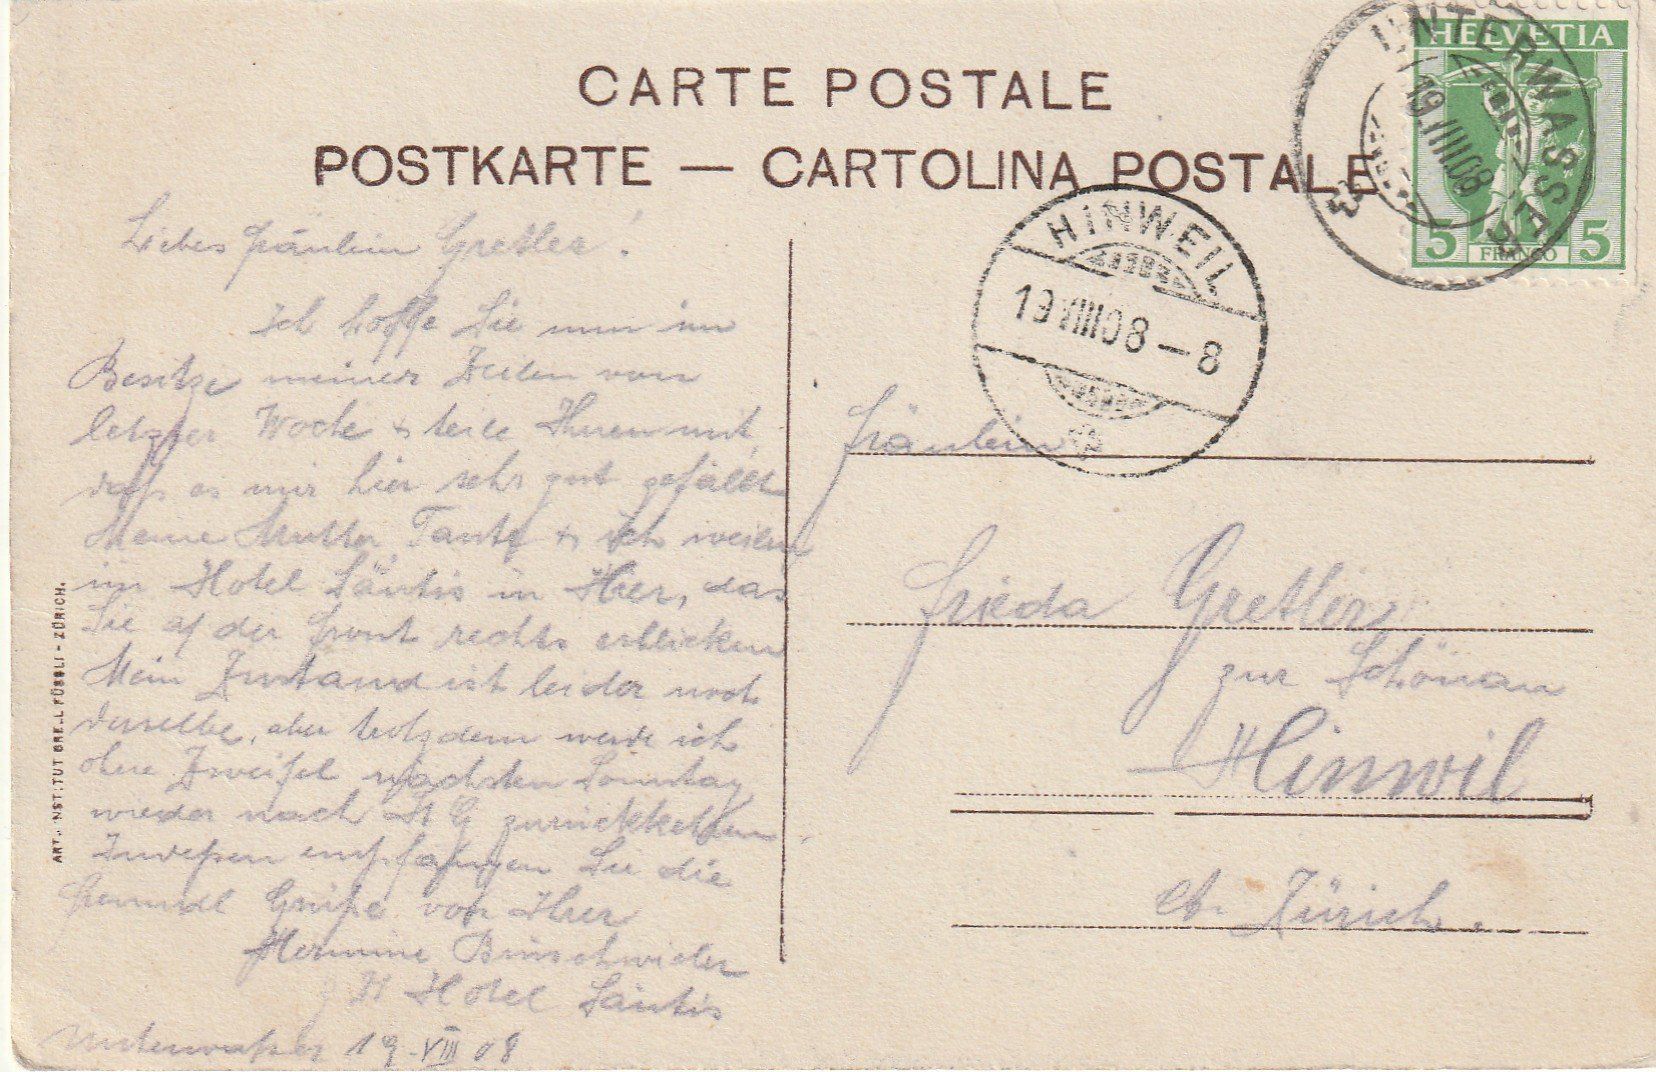 CARTE POSTALE
POSTKARTE — CARTOLINA POSTALE
HELVETIA
5 FRANCO 5
UNTERWASSER
19.VIII.08
HINWEIL
19.VIII.08—8
Liebes Fräulein Gretler!
Ich hoffe Sie nun im
Besitze meiner Zeilen von
letzter Woche & teile Ihnen mit,
daß es mir hier sehr gut gefällt.
Meine Mutter, Tante & ich weilen
im Hotel Säntis in Hier, das
Sie af der Front rechts erblicken
Mein Zustand ist leider noch
derselbe, aber trotzdem werde ich
ohne Zweifel nächsten Sonntag
wieder nach St G zurückkehren
Indeßen empfangen Sie die
freundl Grüße von Ihrer
Hermine
z. Z Hotel Säntis
Unterwaßer 19.VIII 08
Fräulein
Frieda Gretler
zur Schönau
Hinwil
Ct. Zürich.
ART. INSTITUT ORELL FÜSSLI - ZÜRICH.